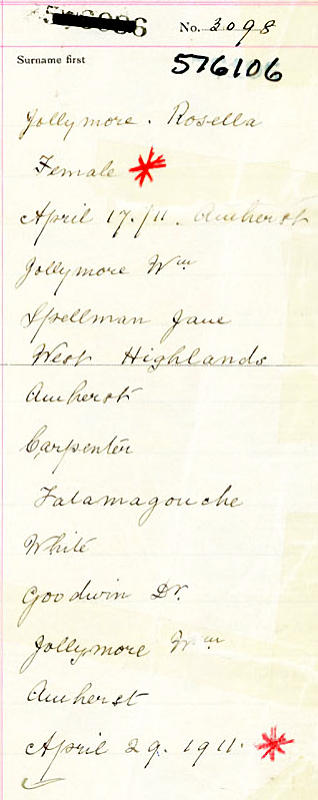 No. 3098
Surname first
576106
Jollymore. Rosella
Female
April 17./11. Amherst
Jollymore Wm
Spellman Jane
West Highlands
Amherst
Carpenter
Tatamagouche
White
Goodwin Dr.
Jollymore Wm
Amherst
April 29. 1911.